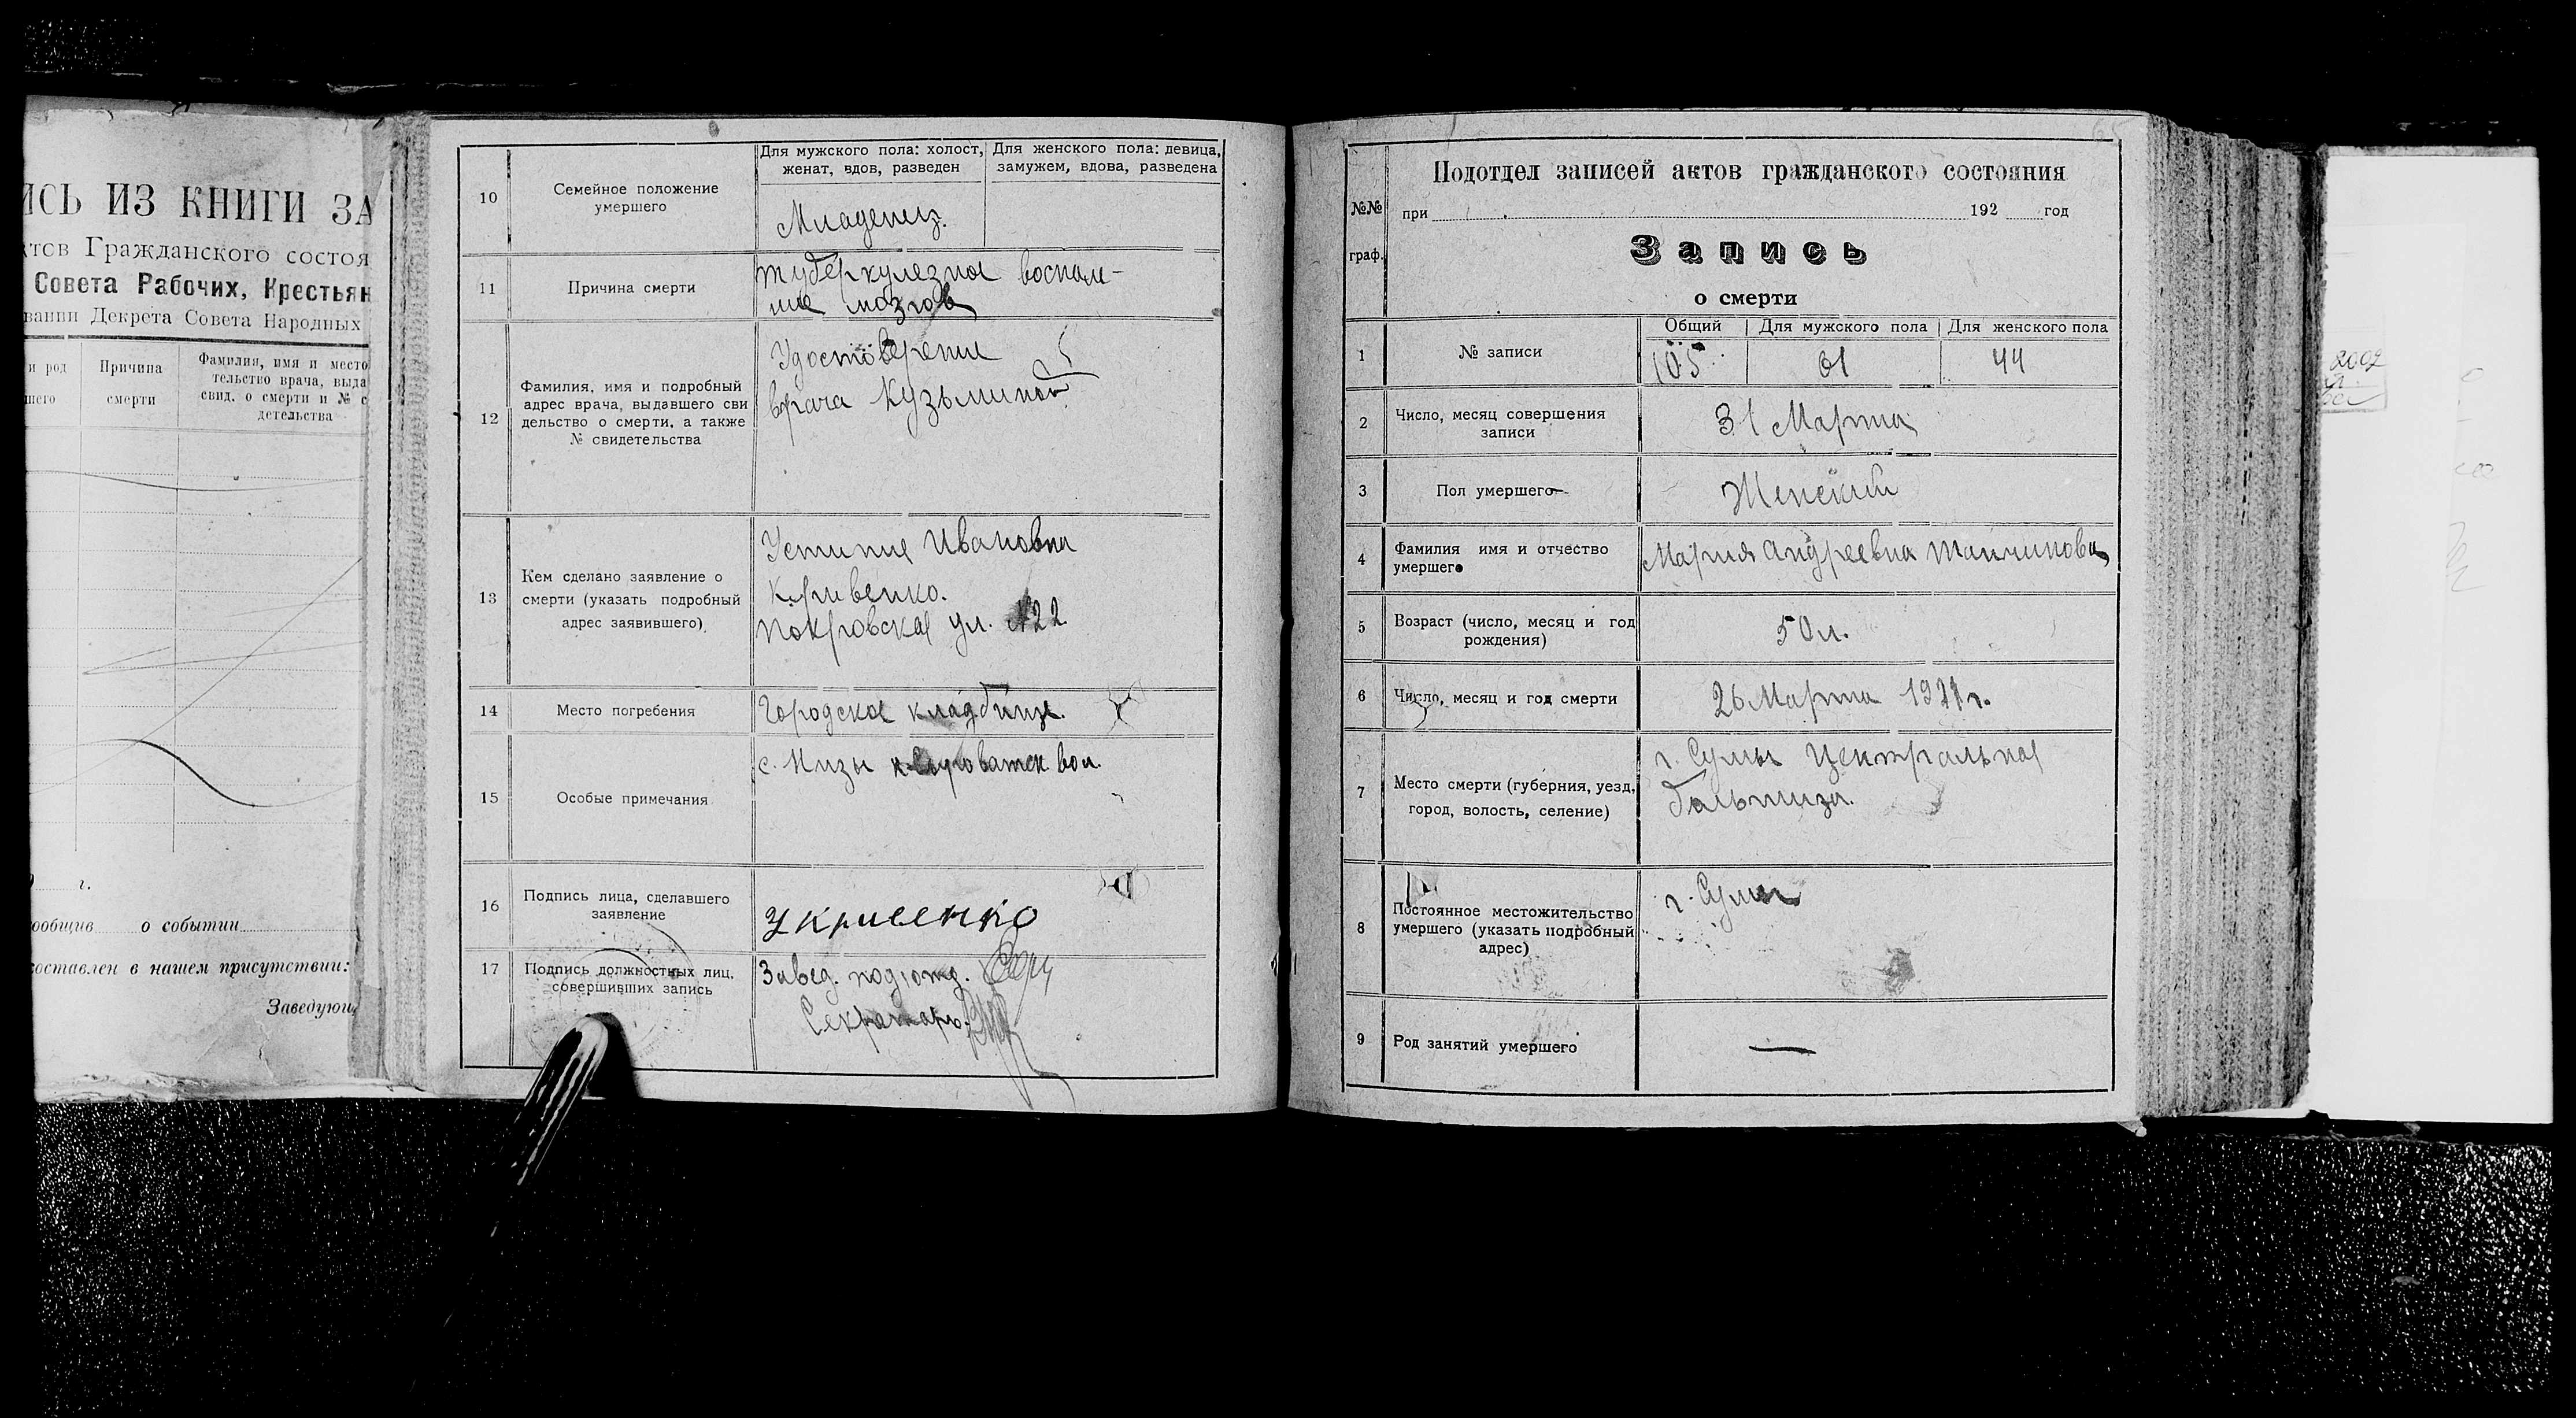 ИСЬ ИЗ КНИГИ ЗА
ктов Гражданского состоя
Совета Рабочих, Крестьян
вании Декрета Совета Народных
и род
шего
Причина
смерти
Фамилия, имя и место
тельство врача, выда
свид. о смерти и № с
детельства
г.
ообщив о событии
составлен в нашем присутствии:
Заведующ
10
Семейное положение
умершего
Для мужского пола: холост,
женат, вдов, разведен
Для женского пола: девица,
замужем, вдова, разведена
Младенец.
11
Причина смерти
туберкулезное воспале-
ние мозгов
12
Фамилия, имя и подробный
адрес врача, выдавшего сви
дельство о смерти, а также
№ свидетельства
Удостоверение
врача Кузьминой
13
Кем сделано заявление о
смерти (указать подробный
адрес заявившего)
Устиние Ивановна
Кривенко.
Покровская ул. №22
14
Место погребения
Городское кладбище.
15
Особые примечания
с. Низы н-Сыроватск вол.
16
Подпись лица, сделавшего
заявление
У Кривенко
17
Подпись должностных лиц,
совершивших запись
Завед. подотд.
Секретарь
65
№№
граф.
Подотдел записей актов гражданского состояния
при 192 год
Запись
о смерти
1
№ записи
Общий
Для мужского пола
Для женского пола
105
61
44
2
Число, месяц совершения
записи
31 Марта
3
Пол умершего
Женский
4
Фамилия имя и отчество
умершего
Мария Андреевна Танчинова
5
Возраст (число, месяц и год
рождения)
50 л.
6
Число, месяц и год смерти
26 Марта 1921 г.
7
Место смерти (губерния, уезд,
город, волость, селение)
г. Сумы Центральная
больница.
8
Постоянное местожительство
умершего (указать подробный
адрес)
г. Сумы
9
Род занятий умершего
—
2002